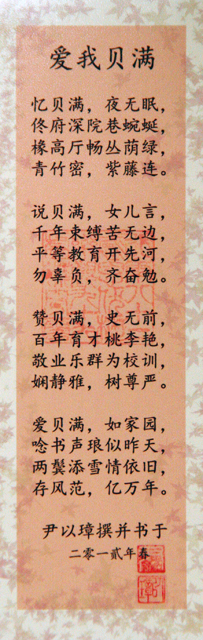 爱我贝满
忆贝满，夜无眠，
佟府深院巷蜿蜒，
椽高厅畅丛荫绿，
青竹密，紫藤连。
说贝满，女儿言，
千年束缚苦无边，
平等教育开先河，
勿辜负，齐奋勉。
赞贝满，史无前，
百年育才桃李艳，
敬业乐群为校训，
娴静雅，树尊严。
爱贝满，如家园，
唸书声琅似昨天，
两鬓添雪情依旧，
存风范，亿万年。
尹以璋撰并书于
二零一贰年春